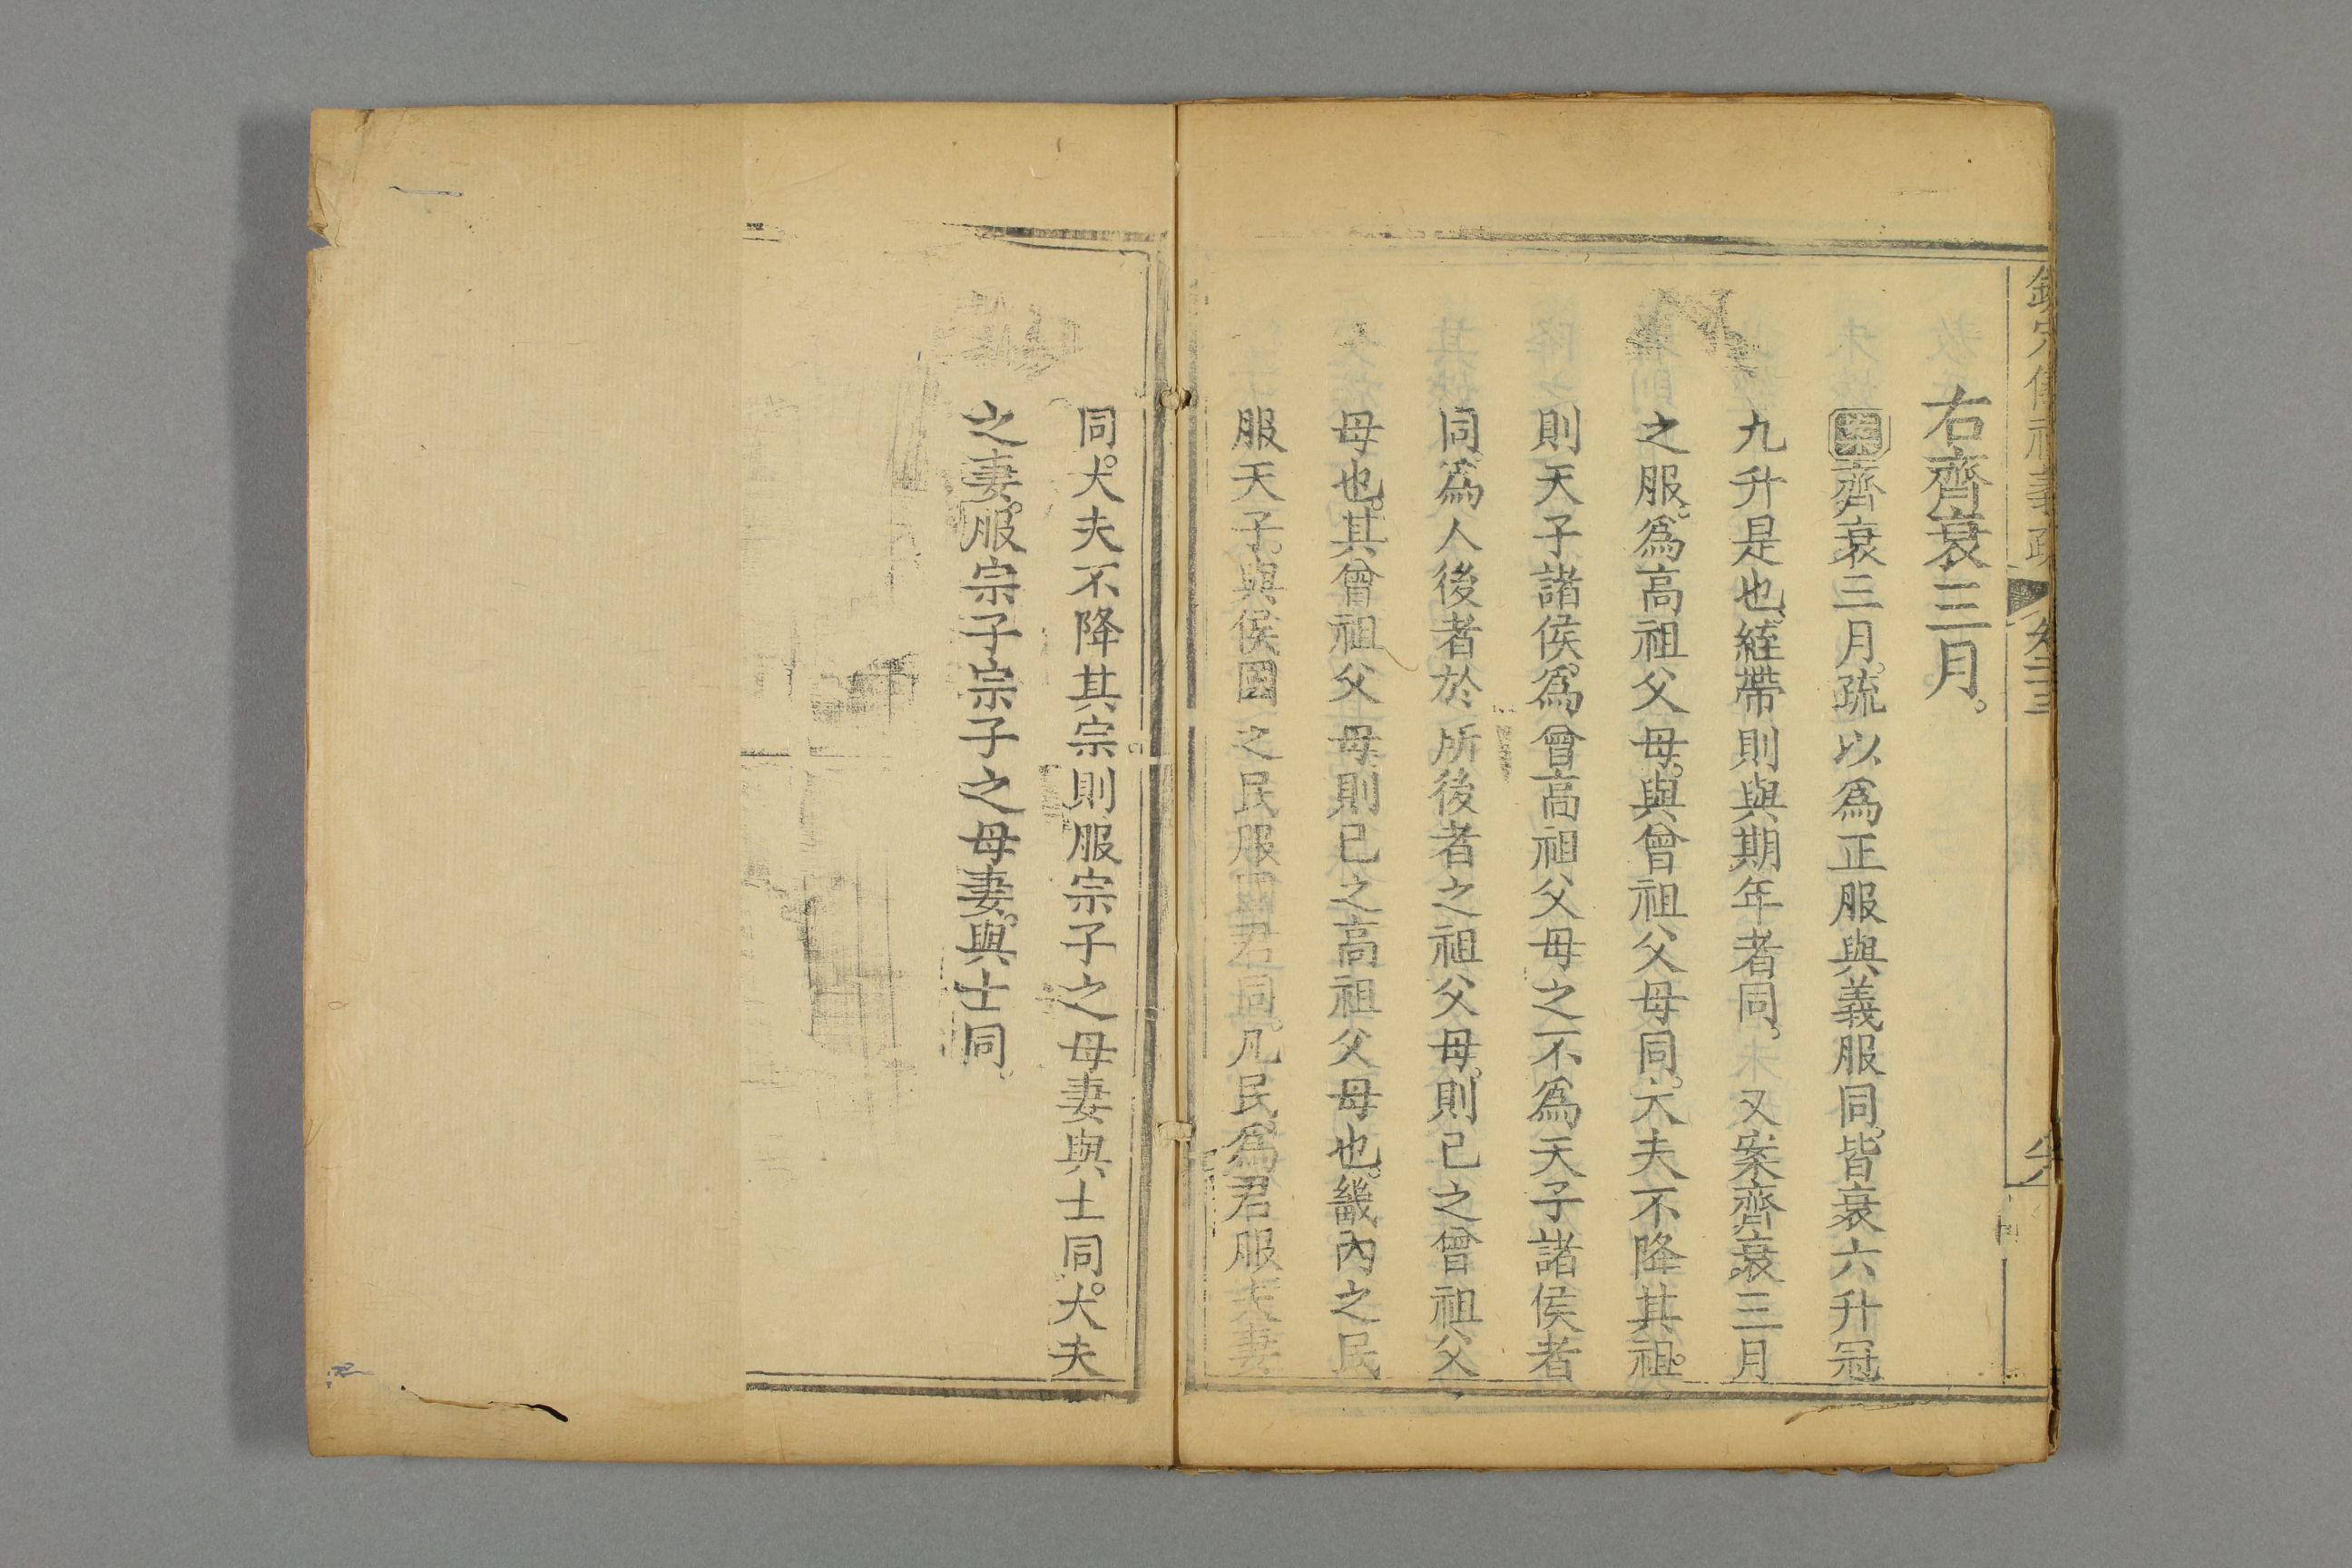 右齊衰三月。
案齊衰三月。疏以爲正服與義服同。皆衰六升冠
九升是也。絰帶則與期年者同。又案齊衰三月
之服。爲高祖父母。與曾祖父母同。大夫不降其祖。
則天子諸侯。爲曾高祖父母之不爲天子諸侯者
同。爲人後者於所後者之祖父母。則已之曾祖父
母也。其曾祖父母則已之高祖父母也。畿內之民
服天子。與侯國之民服君同。凡民。爲君服夫妻
同。大夫不降其宗則服宗子之母妻與士同。大夫
之妻。服宗子宗子之母妻。與士同